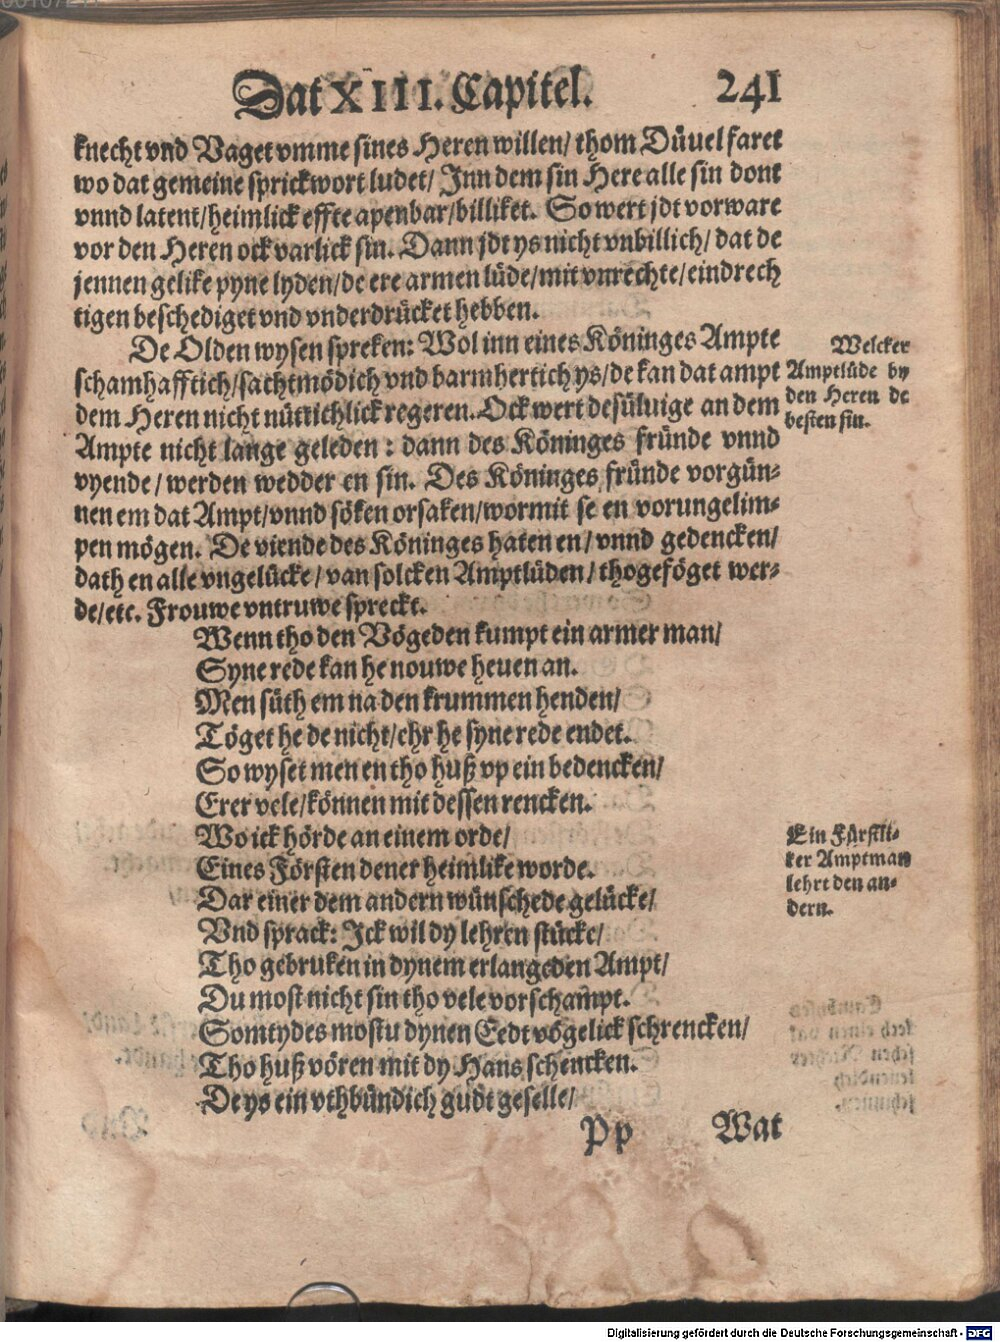 Dat XIII. Capitel. 241
knecht vnd Vaget vmme sines Heren willen/ thom Düuel faret
wo dat gemeine sprickwort ludet/ Inn dem sin Here alle sin dont
vnnd latent/heimlick effte apenbar/billiket. So wert jdt vorware
vor den Heren ock varlick sin. Dann jdt ys nicht vnbillich/ dat de
jennen gelike pyne lyden/de ere armen lüde/mit vnrechte/eindrech
tigen beschediget vnd vnderdrücket hebben.
De Olden wysen spreken: Wol inn eines Köninges Ampte
schamhafftich/sachtmödich vnd barmhertich ys/de kan dat ampt
dem Heren nicht nüttichlick regeren. Ock wert desüluige an dem
Ampte nicht lange geleden: dann des Köninges fründe vnnd
vyende/ werden wedder en sin. Des Köninges fründe vorgün-
nen em dat Ampt/vnnd söken orsaken/wormit se en vorungelim-
pen mögen. De viende des Köninges haten en/ vnnd gedencken/
dath en alle vngelücke/ van solcken Amptlüden/ thogeföget wer-
de/etc. Frouwe vntruwe spreckt.
Welcker
Amptlüde by
den Heren de
besten sin.
Wenn tho den Vögeden kumpt ein armer man/
Syne rede kan he nouwe heuen an.
Men süth em na den krummen henden/
Töget he de nicht/ehr he syne rede endet.
So wyset men en tho huß vp ein bedencken/
Erer vele/können mit dessen rencken.
Wo ick hörde an einem orde/
Eines Försten dener heimlike worde.
Dar einer dem andern wünschede gelücke/
Vnd sprack: Ick wil dy lehren stücke/
Tho gebruken in dynem erlangeden Ampt/
Du most nicht sin tho vele vorschampt.
Somtydes mostu dynen Eedt vögelick schrencken/
Tho huß vören mit dy Hans schencken.
De ys ein vthbündich gudt geselle/
Ein Fürstli-
ker Amptman
lehrt den an-
dern.
Pp Wat
Digitalisierung gefördert durch die Deutsche Forschungsgemeinschaft - DFG